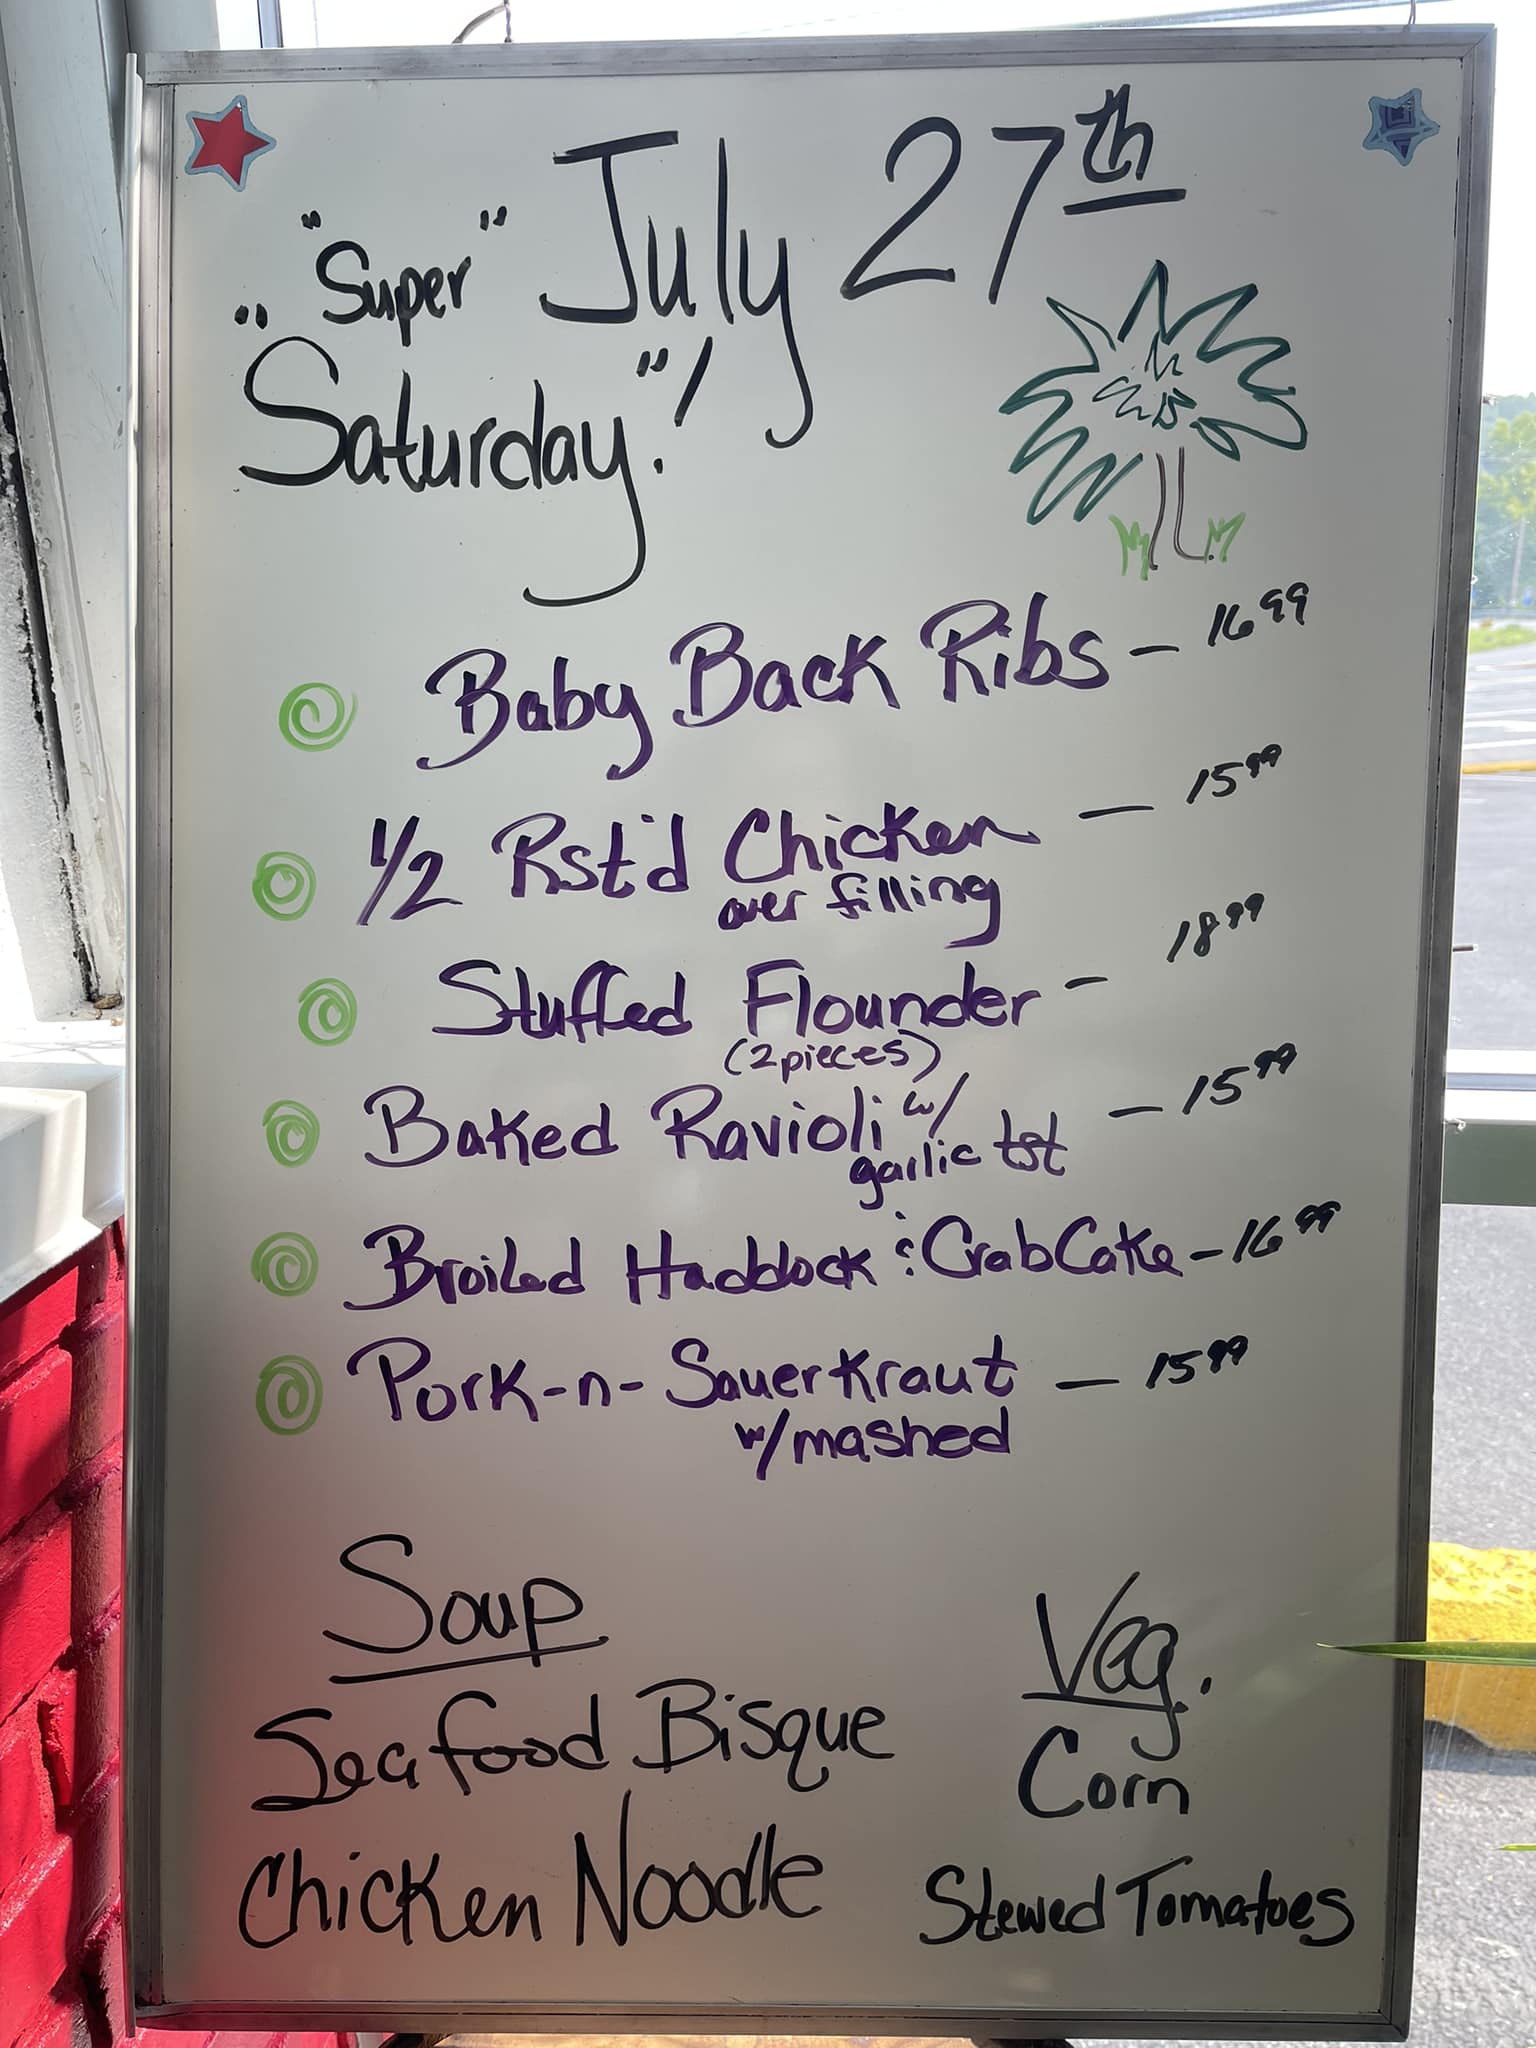 July 27th
"Super"
"Saturday"!
Baby Back Ribs - 16 99
1/2 Rst'd Chicken - 15 99
over filling
Stuffed Flounder - 18 99
(2 pieces)
Baked Ravioli w/ - 15 99
garlic tst
Broiled Haddock & Crab Cake - 16 99
Pork-n-Sauerkraut - 15 99
w/mashed
Soup
Seafood Bisque
Chicken Noodle
Veg.
Corn
Stewed Tomatoes